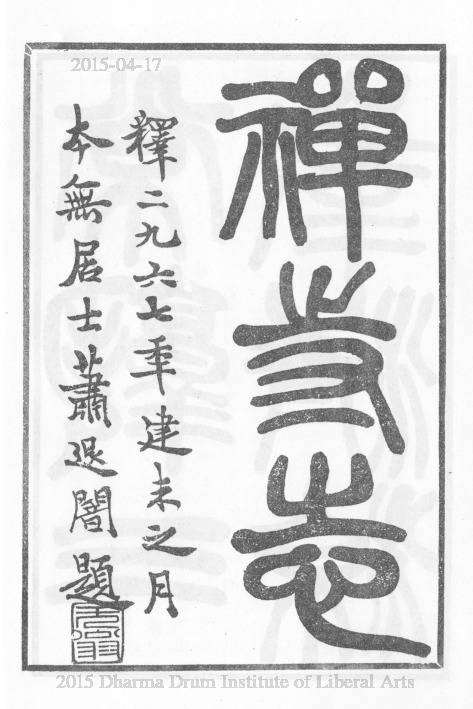 2015-04-17
禪寺志
釋二九六七秊建未之月
本無居士蕭退闇題
2015 Dharma Drum Institute of Liberal Arts